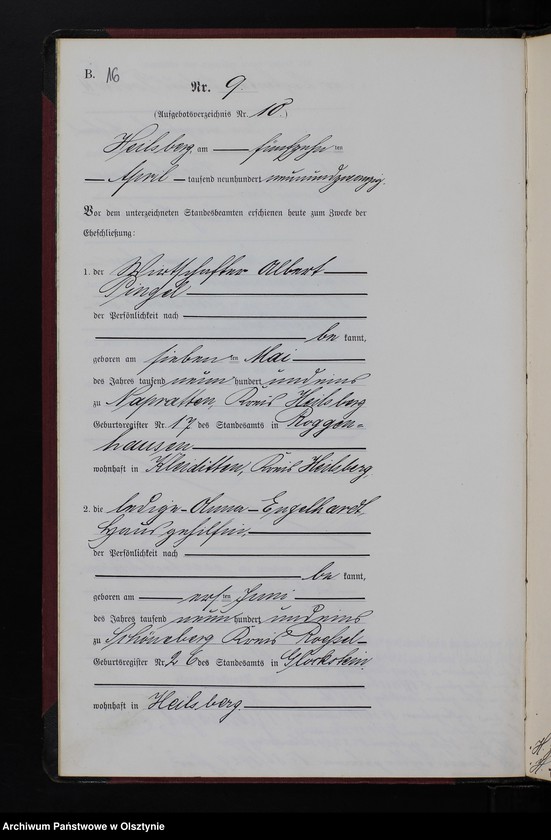 B. 16
Nr. 9.
(Aufgebotsverzeichnis Nr. 10.)
Heilsberg, am fünfzehn ten
April tausend neunhundert neunundzwanzig.
Vor dem unterzeichneten Standesbeamten erschienen heute zum Zwecke der
Eheschließung:
1. der Wirtschafter Albert
Pingel
der Persönlichkeit nach
be kannt,
geboren am sieben ten Mai
des Jahres tausend neun hundert und eins
zu Napratten, Kreis Heilsberg
Geburtsregister Nr. 17 des Standesamts in Roggen=
hausen
wohnhaft in Kleiditten, Kreis Heilsberg,
2. die ledige Anna Engelhardt,
Hausgehilfin,
der Persönlichkeit nach
be kannt,
geboren am ersten Juni
des Jahres tausend neun hundert und eins
zu Schöneberg Kreis Roessel
Geburtsregister Nr. 26 des Standesamts in Glockstein
wohnhaft in Heilsberg.
Archiwum Państwowe w Olsztynie